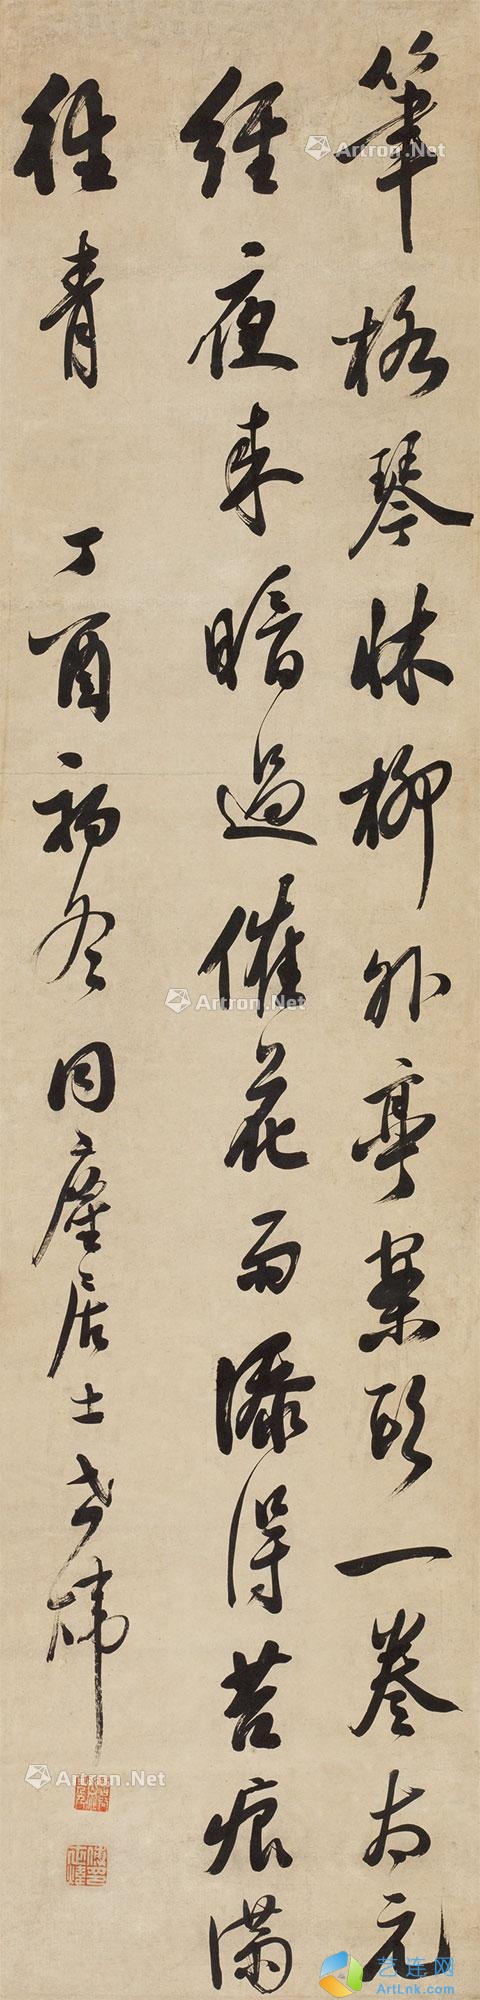 筆格琴牀柳外亭案頭一卷太元
經夜來暗過催花雨添得苔痕滿
徑青 丁酉初冬同塵居士世煒
Artron.Net
Artron.Net
Artron.Net
艺连网
ArtLnk.com